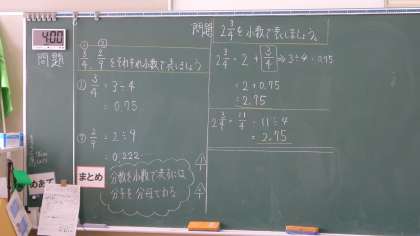 4:00
問題
① 3/4, ② 2/9 をそれぞれ小数で表しましょう
① 3/4 = 3÷4
= 0.75
② 2/9 = 2÷9
= 0.222…
まとめ
分数を小数で表すには
分子を分母でわる
めあて
問題 2 3/4 を小数で表しましょう。
2 3/4 = 2 + 3/4 ⇒ 3÷4=0.75
= 2 + 0.75
= 2.75
2 3/4 = 11/4 = 11÷4
= 2.75